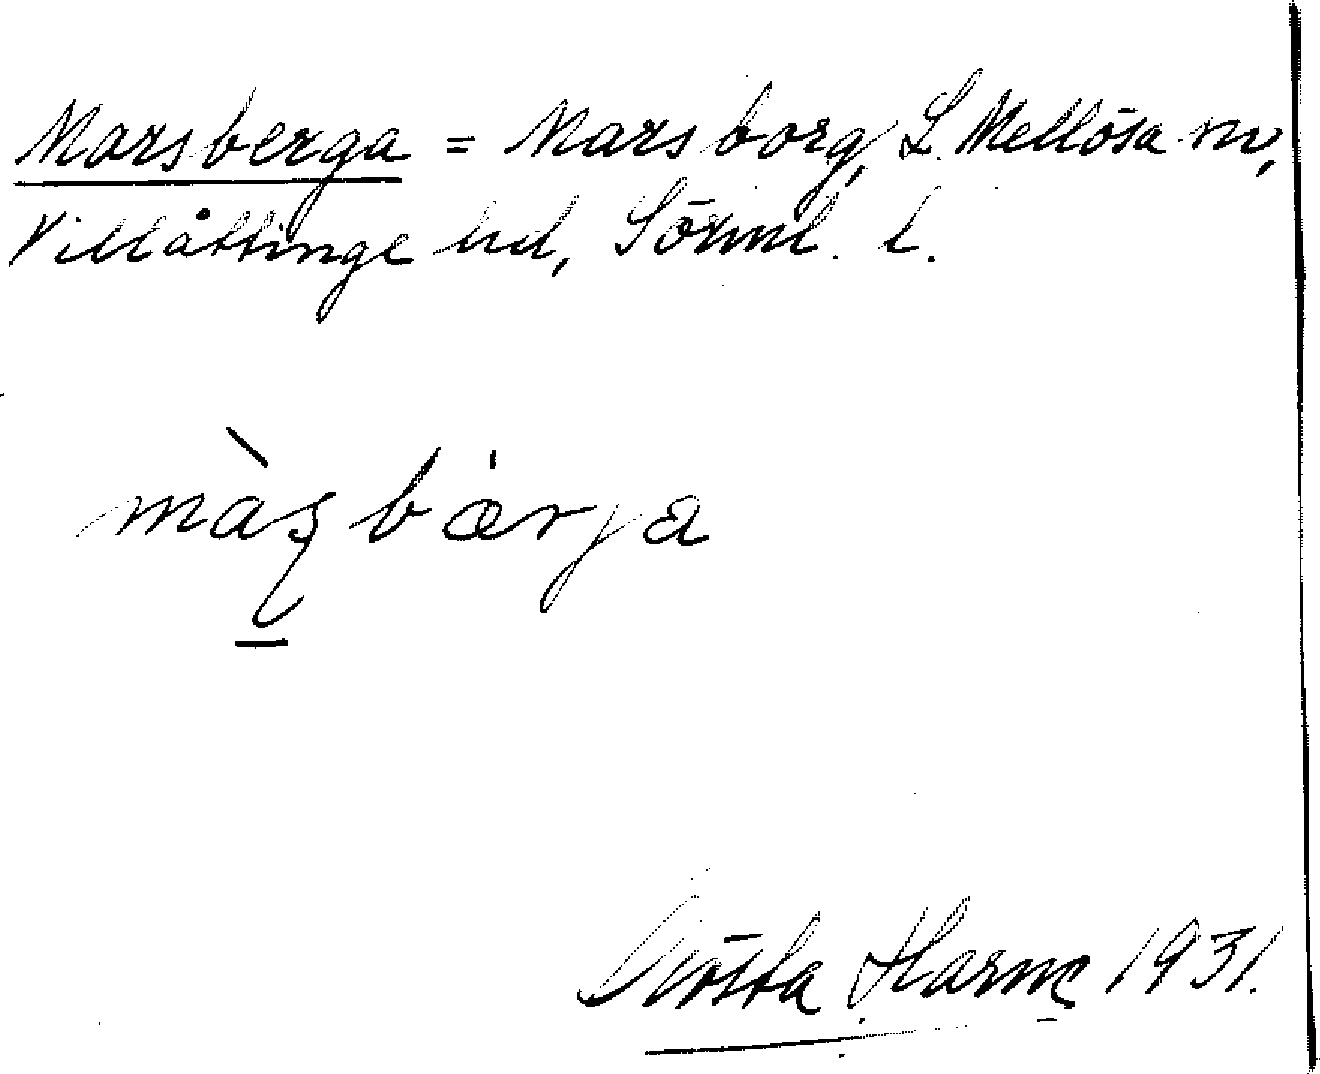 Marsberga = Marsborg, L. Mellösa sn,
Villåttinge hd, Sörml. l.
màʂbærja
Gösta Harmc 1931.